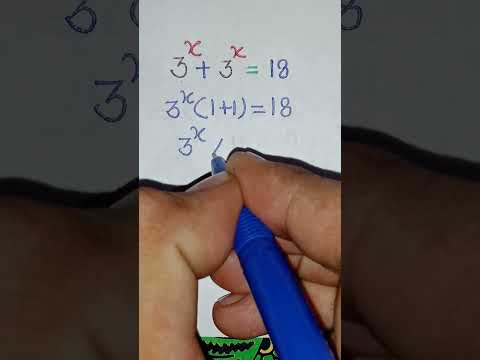 3^x + 3^x = 18
3^x(1+1) = 18
3^x (